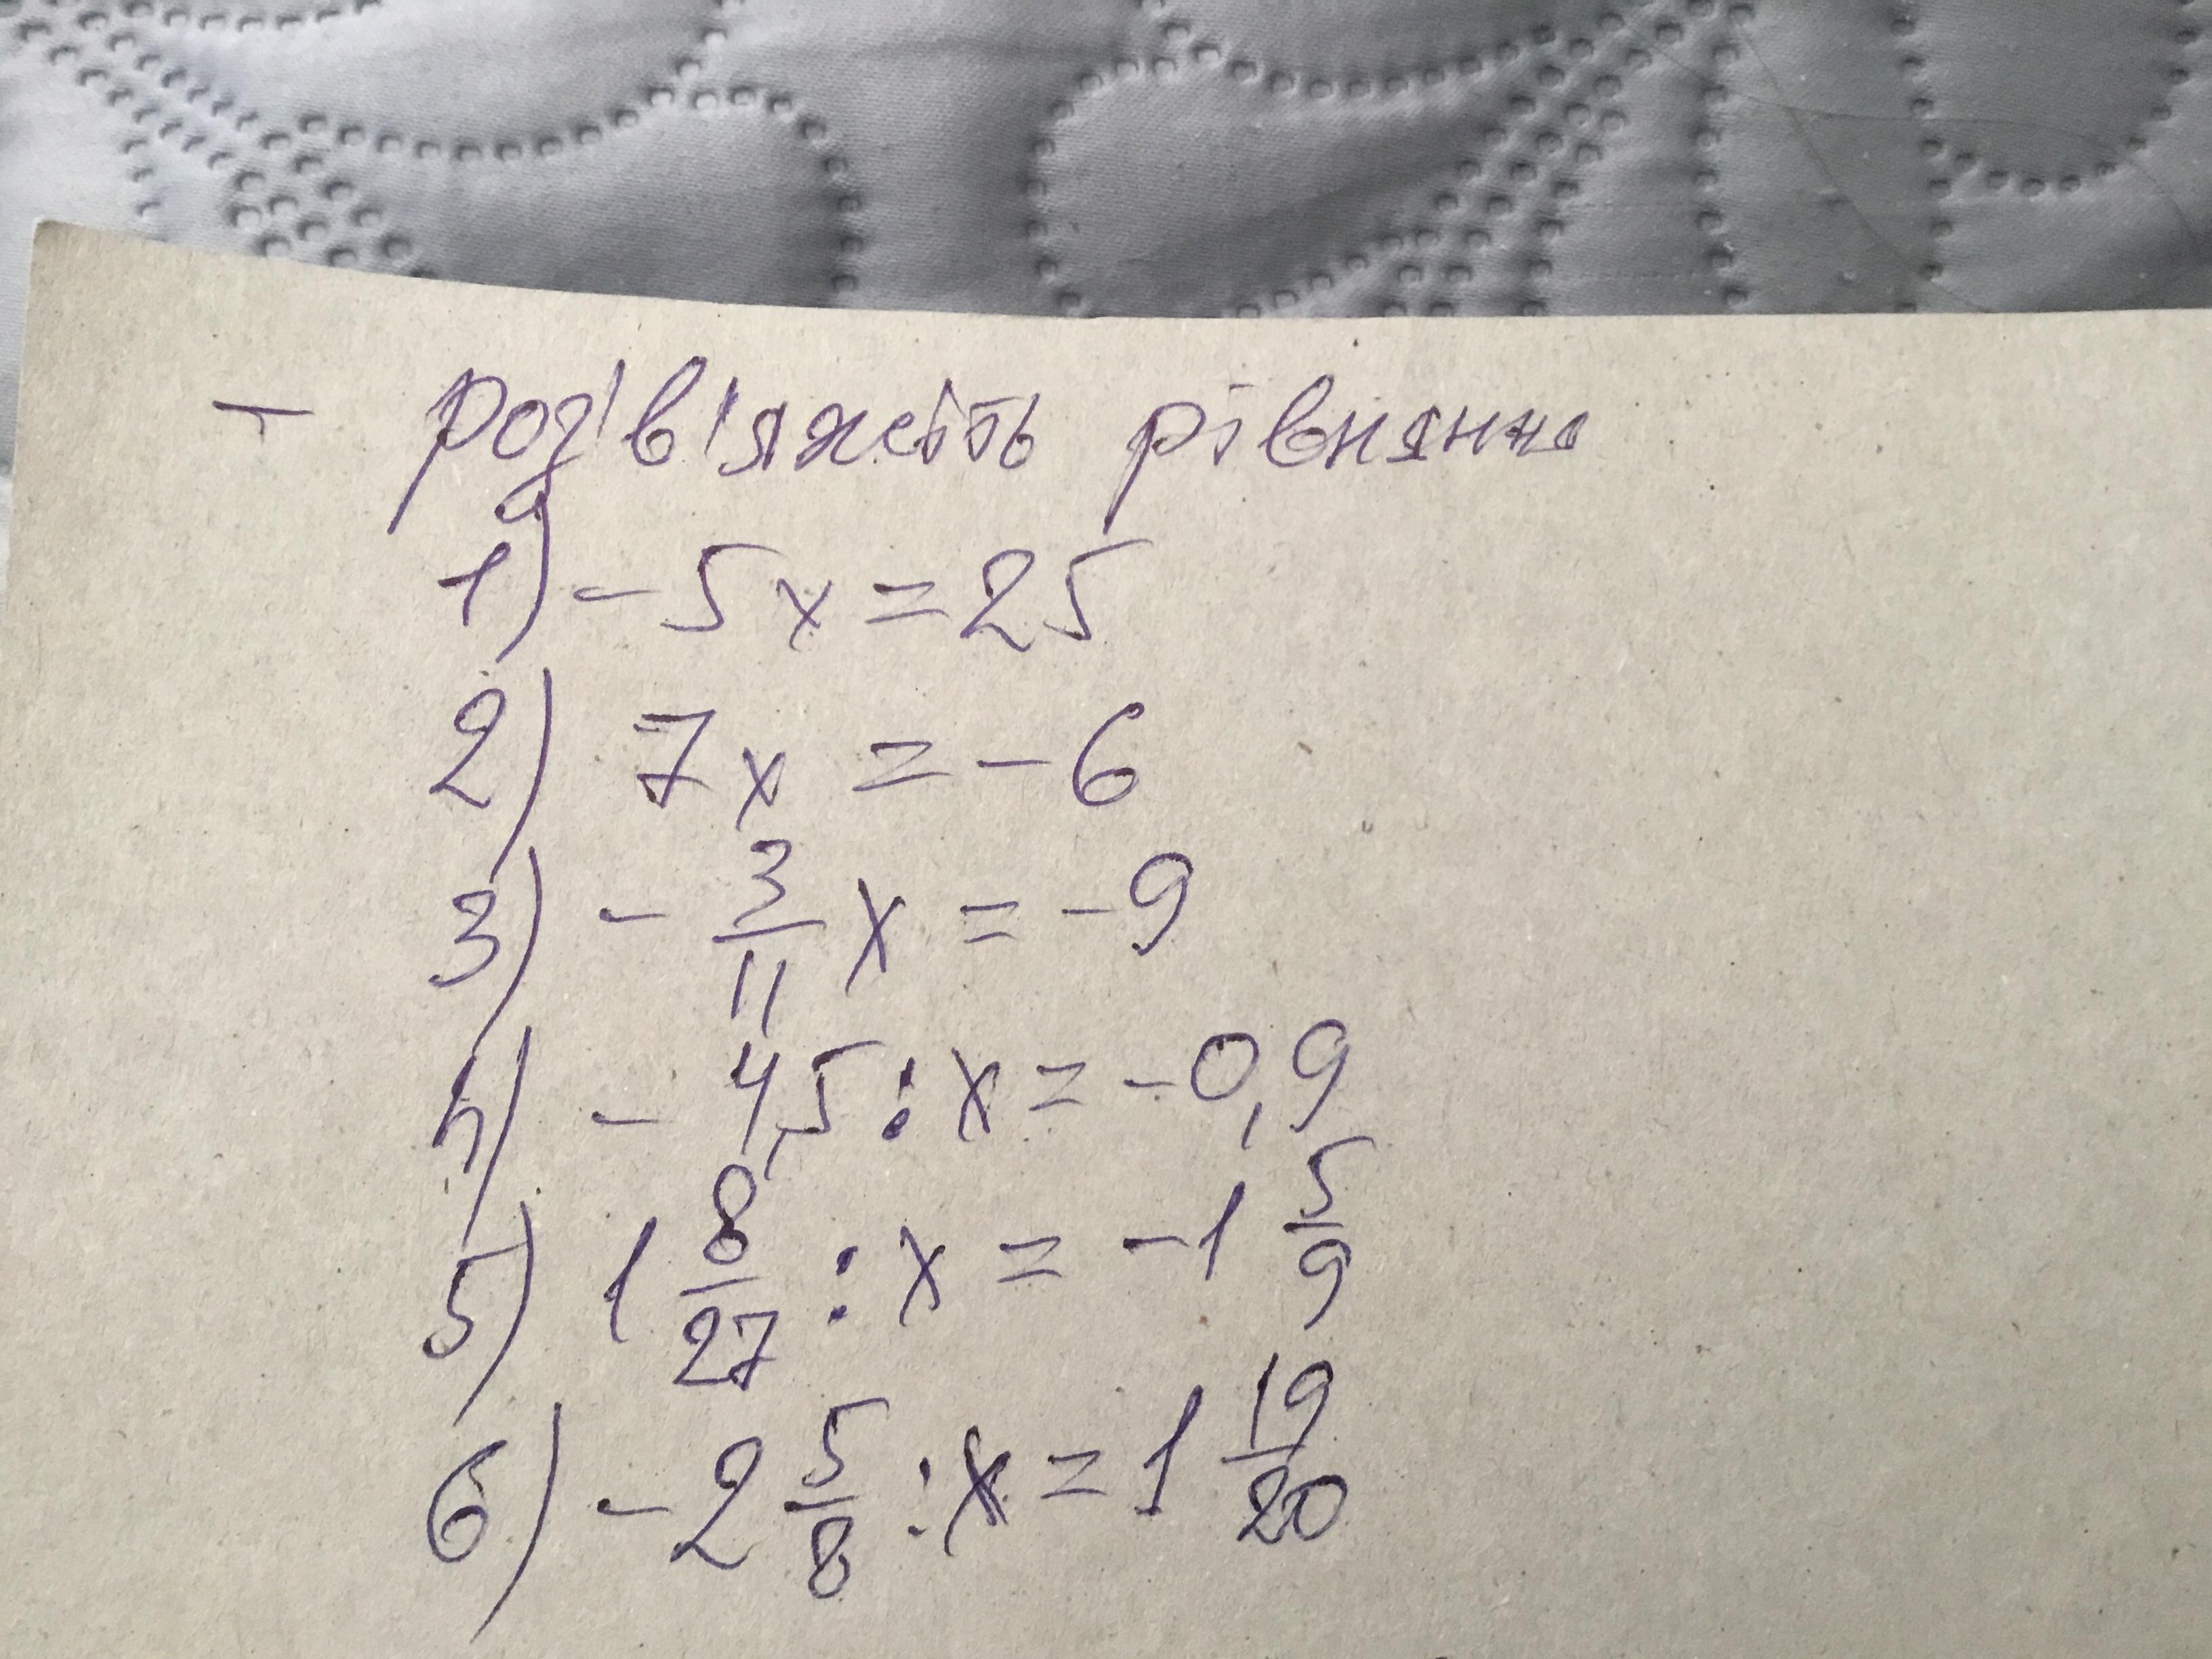 - роз'в'яжіть рівняння
1) - 5x = 25
2) 7x = - 6
3) - 3/11 x = - 9
4) - 4,5 : x = - 0,9
5) 1 8/27 : x = - 1 5/9
6) - 2 5/8 : x = 1 19/20